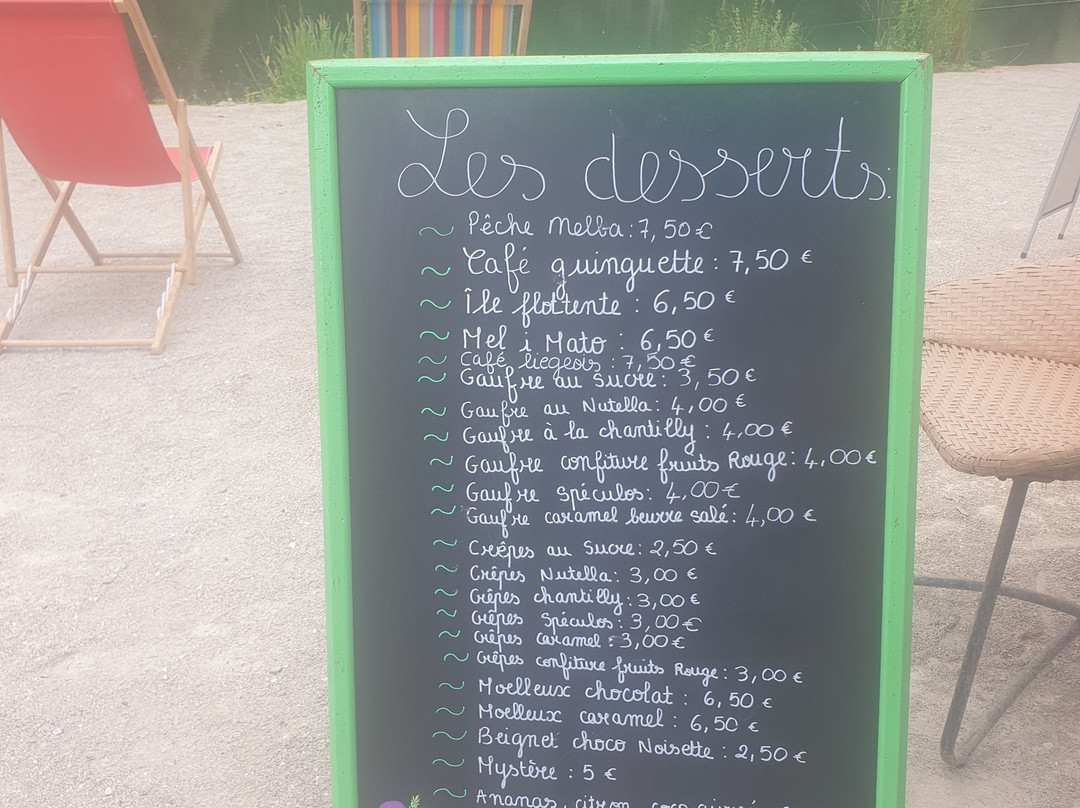 Les desserts:
~ Pêche Melba: 7,50 €
~ Café guinguette : 7,50 €
~ Île flottente : 6,50 €
~ Mel i Mato : 6,50 €
~ Café liegeois : 7,50 €
~ Gaufre au Sucre: 3,50 €
~ Gaufre au Nutella: 4,00 €
~ Gaufre à la chantilly : 4,00 €
~ Gaufre confiture fruits Rouge: 4,00 €
~ Gaufre Spéculos: 4,00 €
~ Gaufre caramel beurre salé: 4,00 €
~ Crêpes au Sucre: 2,50 €
~ Crêpes Nutella: 3,00 €
~ Crêpes chantilly: 3,00 €
~ Crêpes Spéculos: 3,00 €
~ Crêpes caramel : 3,00 €
~ Crêpes confiture fruits Rouge: 3,00 €
~ Moelleux chocolat : 6,50 €
~ Moelleux caramel : 6,50 €
~ Beignet choco Noisette : 2,50 €
~ Mystère : 5 €
~ Ananas, citron, coco